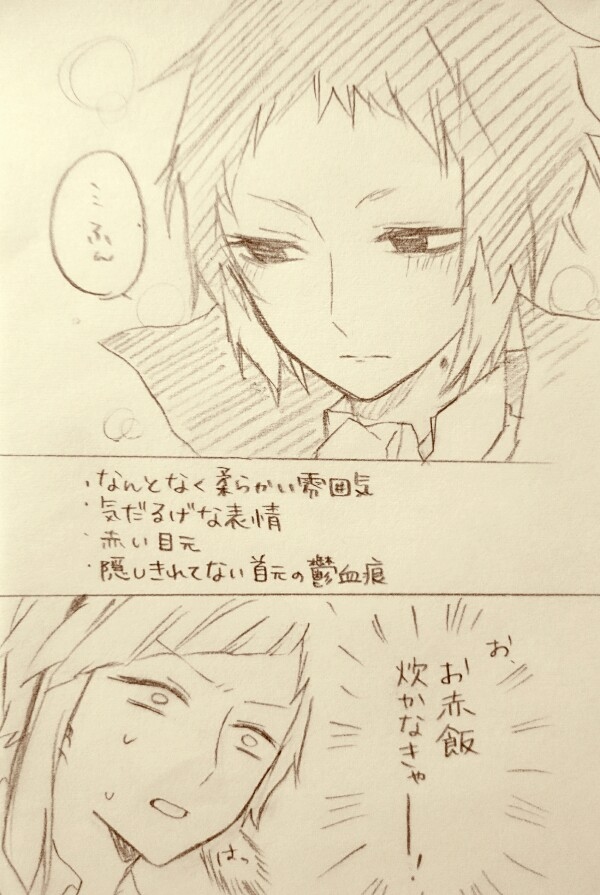 …ふん
・なんとなく柔らかい雰囲気
・気だるげな表情
・赤い目元
・隠しきれてない首元の鬱血痕
お、
お赤飯
炊かなきゃー！
はっ